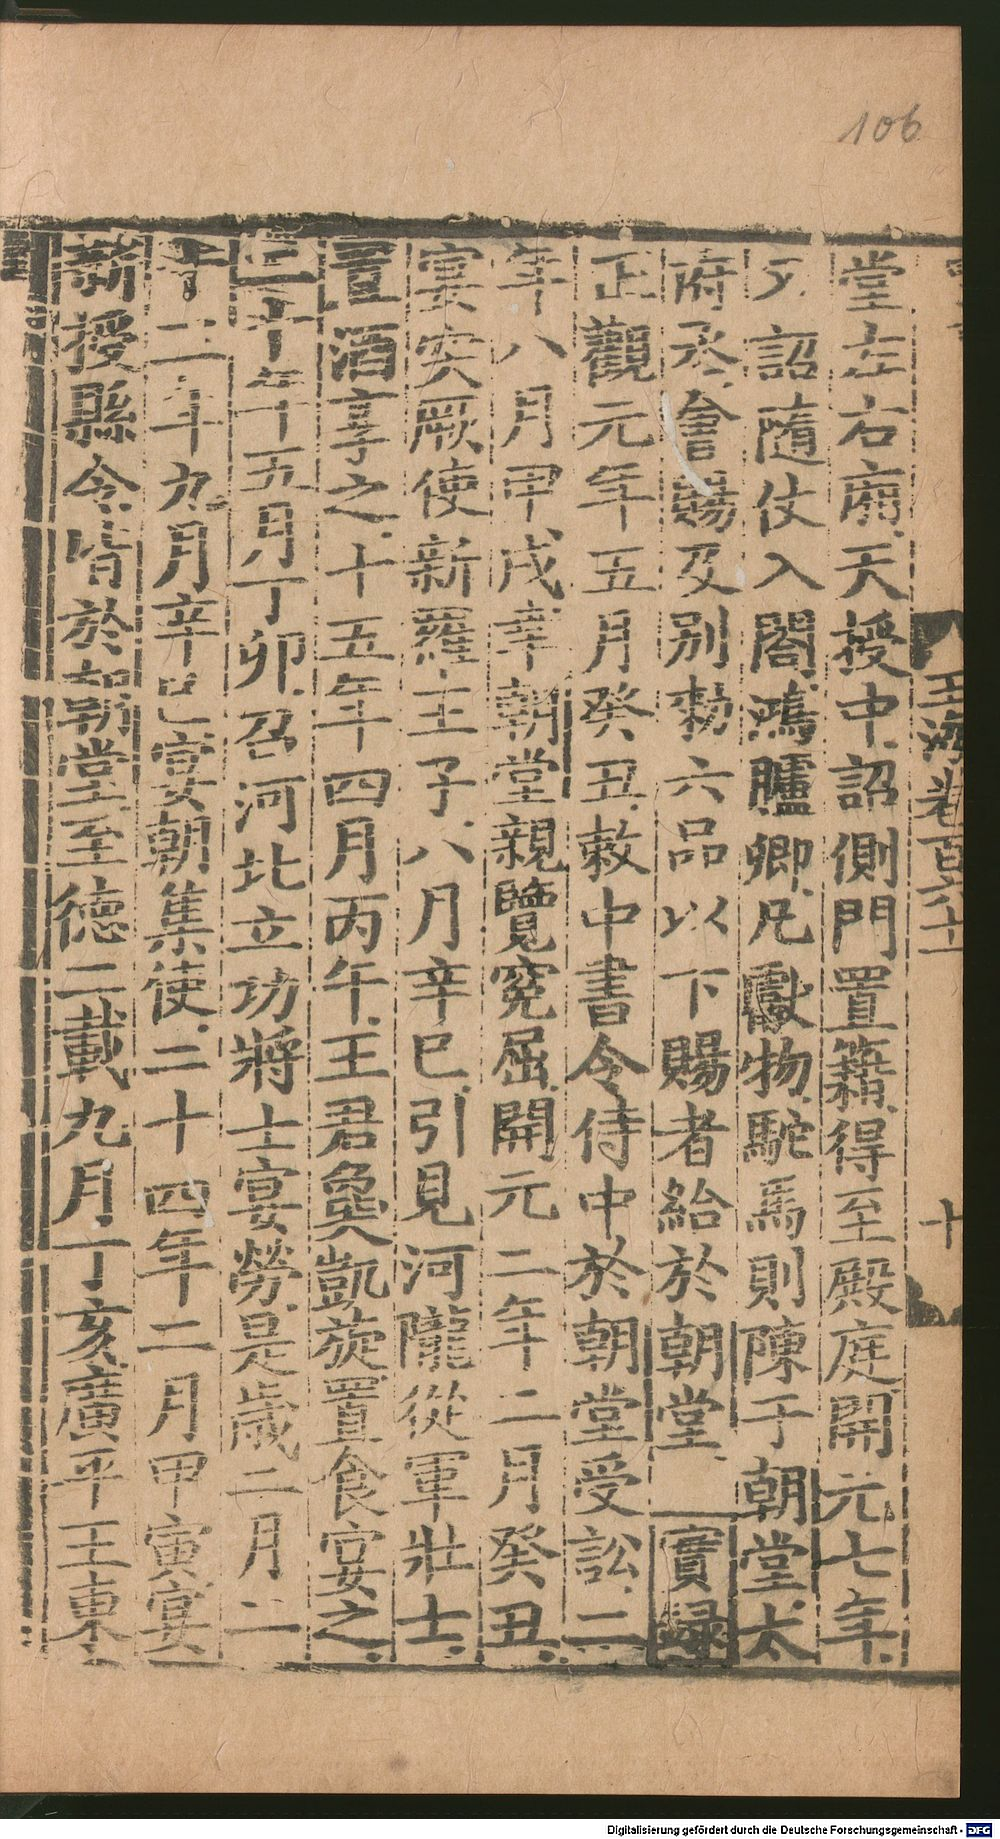 106
堂左右廂天授中詔側門置籍得至殿庭開元七年
詔隨仗入閤鴻臚卿凡獻物駝馬則陳于朝堂太
府丞會賜及別勑六品以下賜者給於朝堂 實録
正觀元年五月癸丑敕中書令侍中於朝堂受訟二
年八月甲戌幸朝堂親覽冤屈開元二年二月癸丑
宴突厥使新羅王子八月辛巳引見河隴從軍壯士
置酒享之十五年四月丙午王君㚟凱旋置食宴之
二十年五月丁卯召河北立功將士宴勞是歲二月二
十二年九月辛巳宴朝集使二十四年二月甲寅宴
新授縣令皆於朝堂至德二載九月丁亥廣平王東
玉海卷百六十
十
Digitalisierung gefördert durch die Deutsche Forschungsgemeinschaft - DFG